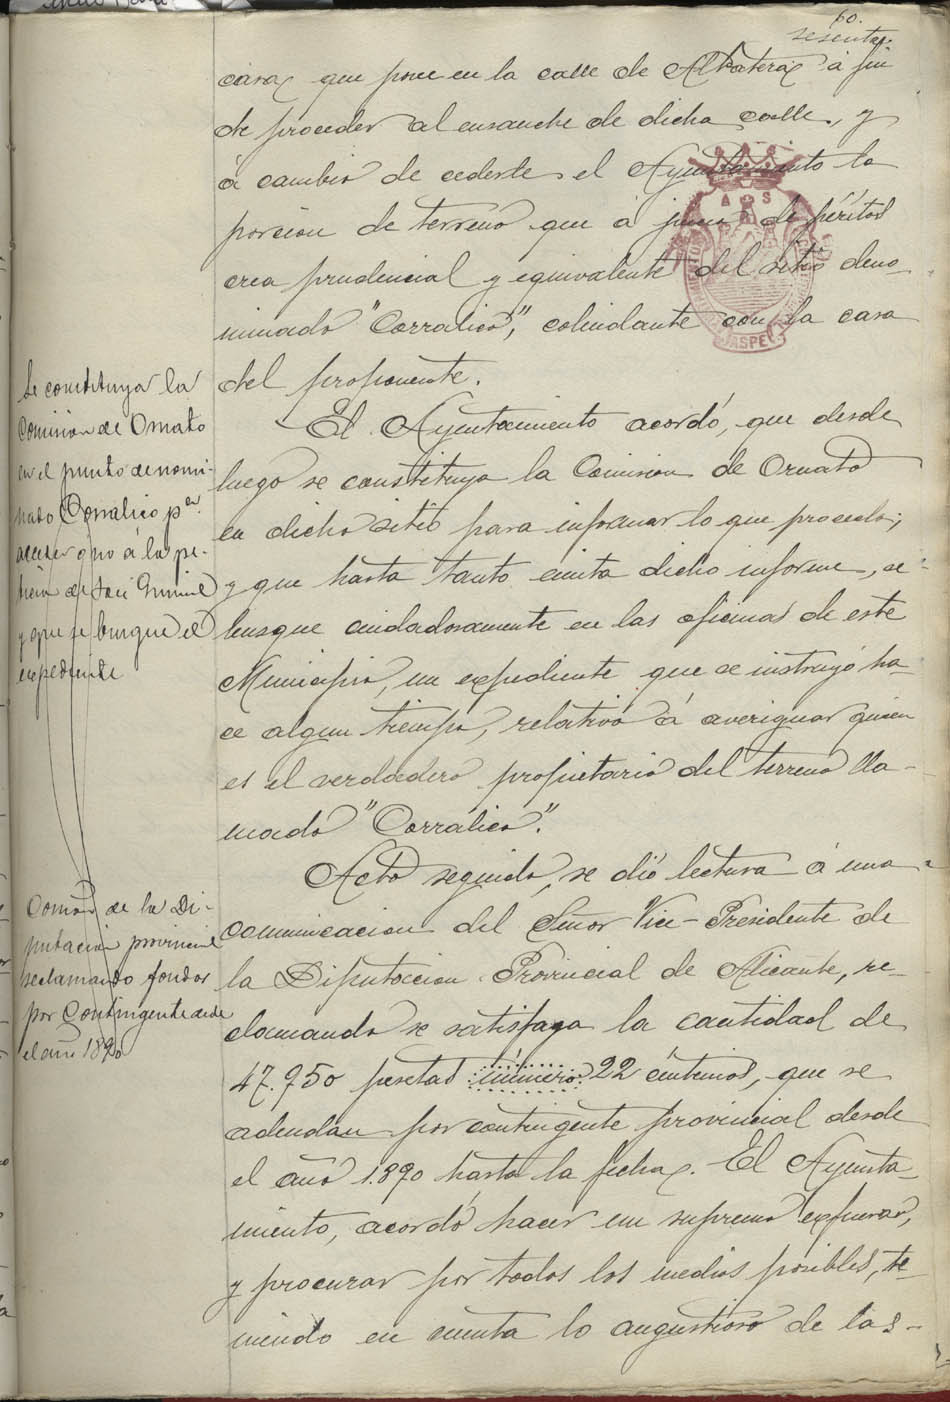 60.
sesenta.
casa, que posee en la calle de Albatera, á fin
de proceder al ensanche de dicha calle, y
á cambio de cederle el Ayuntamiento la
porcion de terreno que á juicio de péritos
crea prudencial y equivalente del sitio deno-
minado "Corralico", colindante con la casa
del proponente.
El Ayuntamiento acordó, que desde
luego se constituya la Comision de Ornato
en dicho sitio para informar lo que proceda;
y que hasta tanto emita dicho informe, se
busque cuidadosamente en las oficinas de este
Municipio, un expediente que se instruyó ha-
ce algun tiempo, relativo á averiguar quien
es el verdadero propietario del terreno lla-
mado "Corralico".
Acto seguido, se dió lectura á una
comunicacion del Señor Vice-Presidente de
la Diputacion Provincial de Alicante, re-
clamando se satisfaga la cantidad de
47.950 pesetas número 22 céntimos, que se
adeudan por contingente provincial desde
el año 1.890 hasta la fecha. El Ayunta-
miento, acordó hacer un supremo esfuerzo,
y procurar por todos los medios posibles, te-
niendo en cuenta lo angustioso de las-
Se constituya la
Comision de Ornato
en el punto denomi-
nado Corralico pa
acceder ó no á la pe-
ticion de José
y que se busque el
expediente
Comon de la Di-
putacion provincial
reclamando fondos
por Contingente desde
el año 1890
A S
JASPE